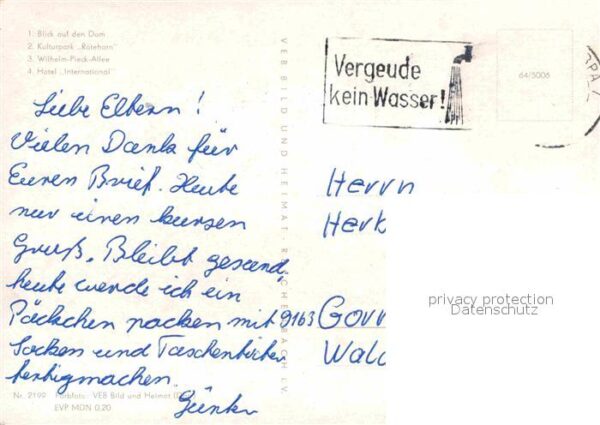 1. Blick auf den Dom
2. Kulturpark „Rotehorn"
3. Wilhelm-Pieck-Allee
4. Hotel „International"
Liebe Eltern!
Vielen Dank für
Euren Brief. Heute
nur einen kurzen
Gruß. Bleibt gesund,
heute werde ich ein
Päckchen packen mit
Socken und Taschentücher
fertigmachen.
Günter
Nr. 2199 Farbfoto: VEB Bild und Heimat
EVP MDN 0,20
VEB BILD UND HEIMAT REICHENBACH I. V.
Vergeude
kein Wasser!
64/5006
Herrn
9163
privacy protection
Datenschutz